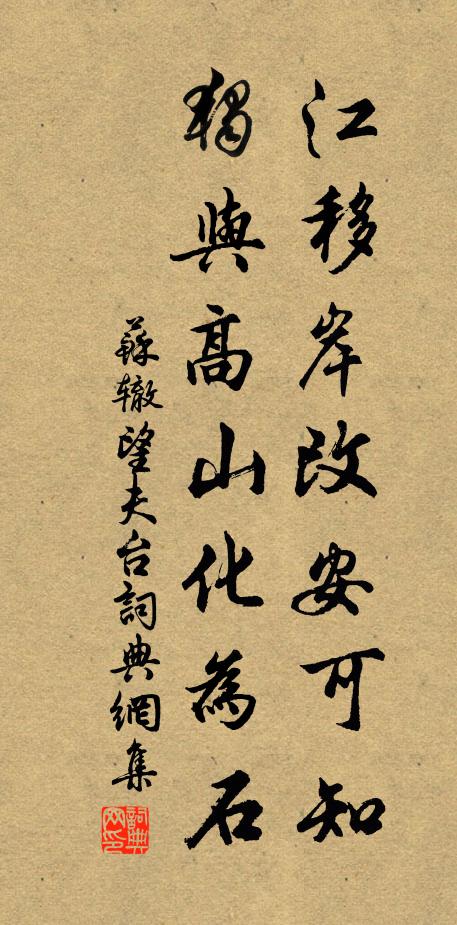 江移岸改安可知
獨與高山化為石
蘇辙望夫台詞典網集
詞典网印